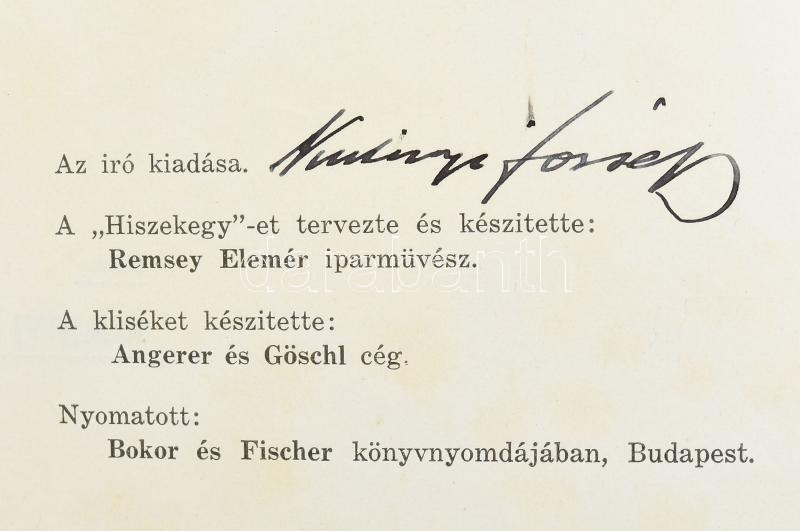 Az iró kiadása. József
A „Hiszekegy”-et tervezte és készitette:
Remsey Elemér iparmüvész.
darabanth
A kliséket készitette:
Angerer és Göschl cég.
Nyomatott:
Bokor és Fischer könyvnyomdájában, Budapest.